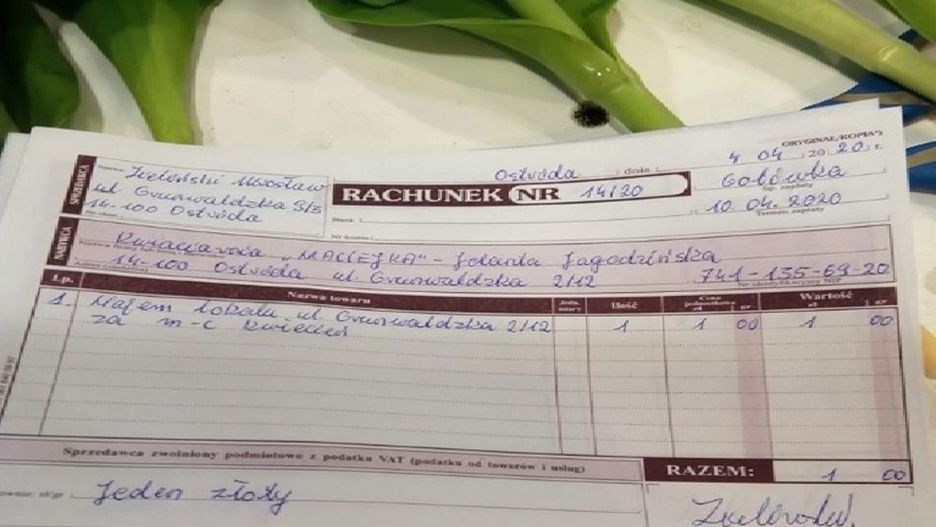 ORYGINAŁ/KOPIA*)
SPRZEDAWCA
Nazwa Zieliński Mirosław
ul Grunwaldzka
14-100 Ostróda
Ostróda dnia 4 04 2020 r.
RACHUNEK NR 14/20
Gotówka
10.04.2020
Termin zapłaty
Bank:
Nr konta:
NABYWCA
Kwiaciarnia „MACIEJKA" - Jolanta Jagodzińska
14-100 Ostróda ul. Grunwaldzka 2/12 741-135-69-20
Lp. Nazwa towaru Ilość Cena jednostkowa zł gr Wartość zł gr
1. Najem lokalu ul. Grunwaldzka 2/12 1 1 00 1 00
za m-c kwiecień
Sprzedawca zwolniony podmiotowo z podatku VAT (podatku od towarów i usług)
RAZEM: 1 00
Słownie: zł/gr Jeden złoty